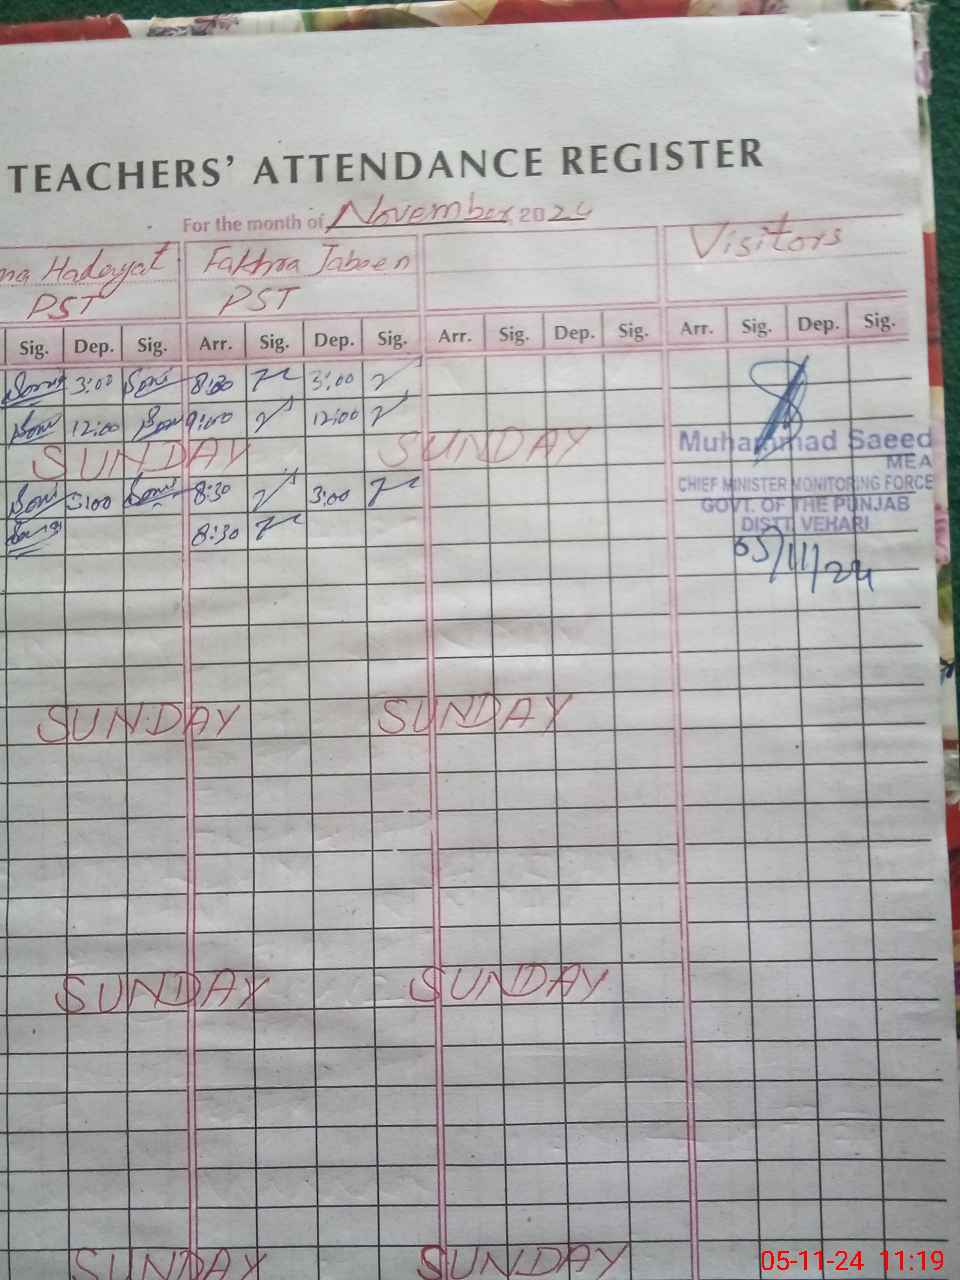 TEACHERS' ATTENDANCE REGISTER
For the month of November 2024
Hadayat Fakhra Jabeen Visitors
PST PST
Sig. Dep. Sig. Arr. Sig. Dep. Sig. Arr. Sig. Dep. Sig. Arr. Sig. Dep. Sig.
3:00 8:30 3:00
12:00 9:00 12:00
SUNDAY SUNDAY
3:00 8:30 3:00
8:30
Muhammad Saeed
MEA
CHIEF MINISTER MONITORING FORCE
GOVT. OF THE PUNJAB
DISTT. VEHARI
05/11/24
SUNDAY SUNDAY
SUNDAY SUNDAY
SUNDAY SUNDAY
05-11-24 11:19